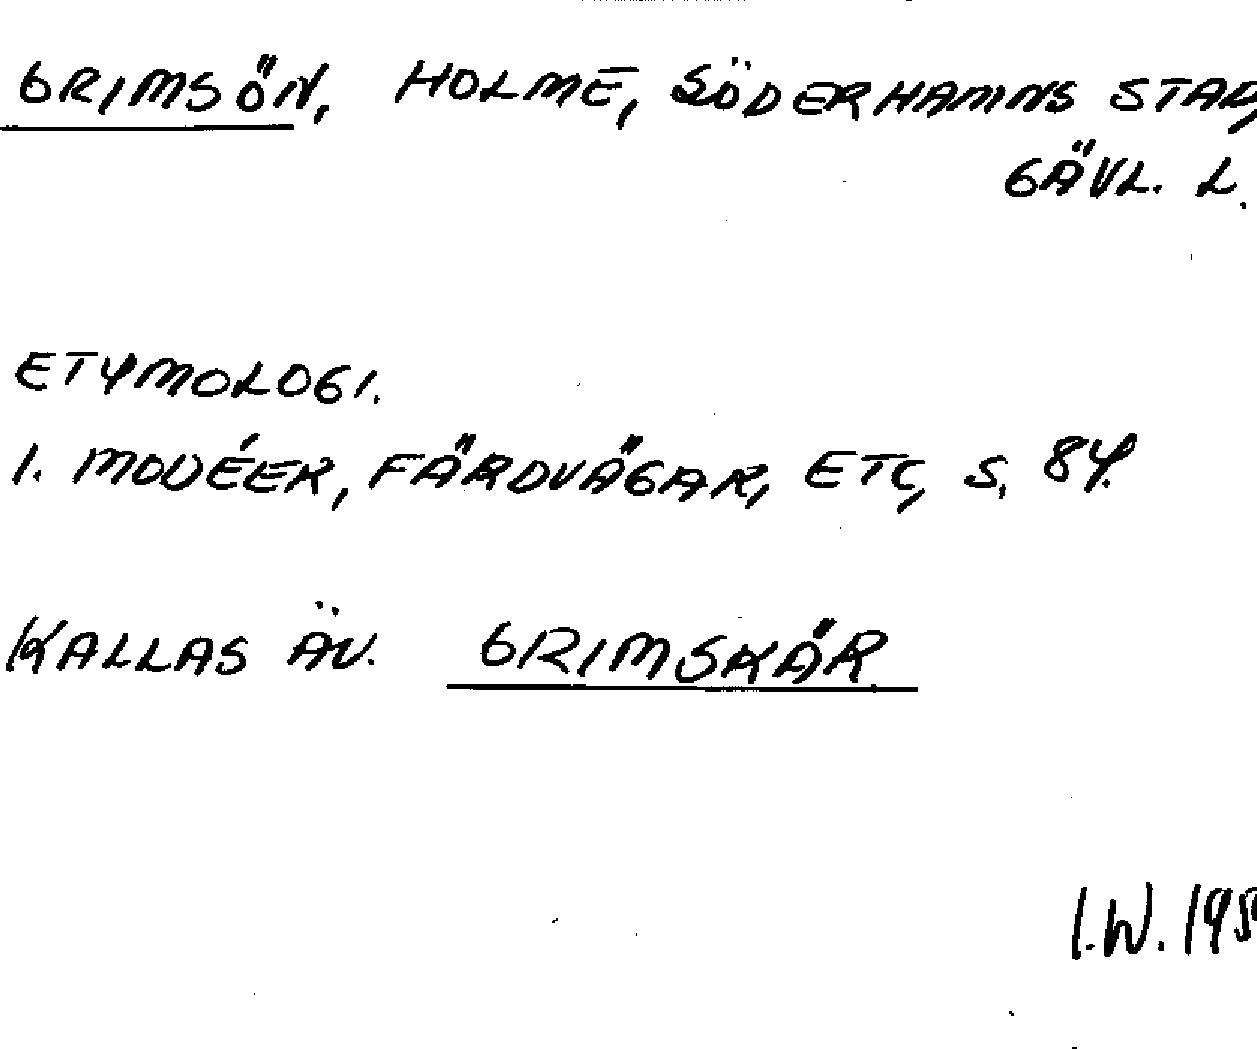 GRIMSÖN, HOLME, SÖDERHAMNS STAD,
GÄVL. L.
ETYMOLOGI.
I. MODÉER, FÄRDVÄGAR, ETC, S. 84.
KALLAS ÄV. GRIMSKÄR.
I.W. 195